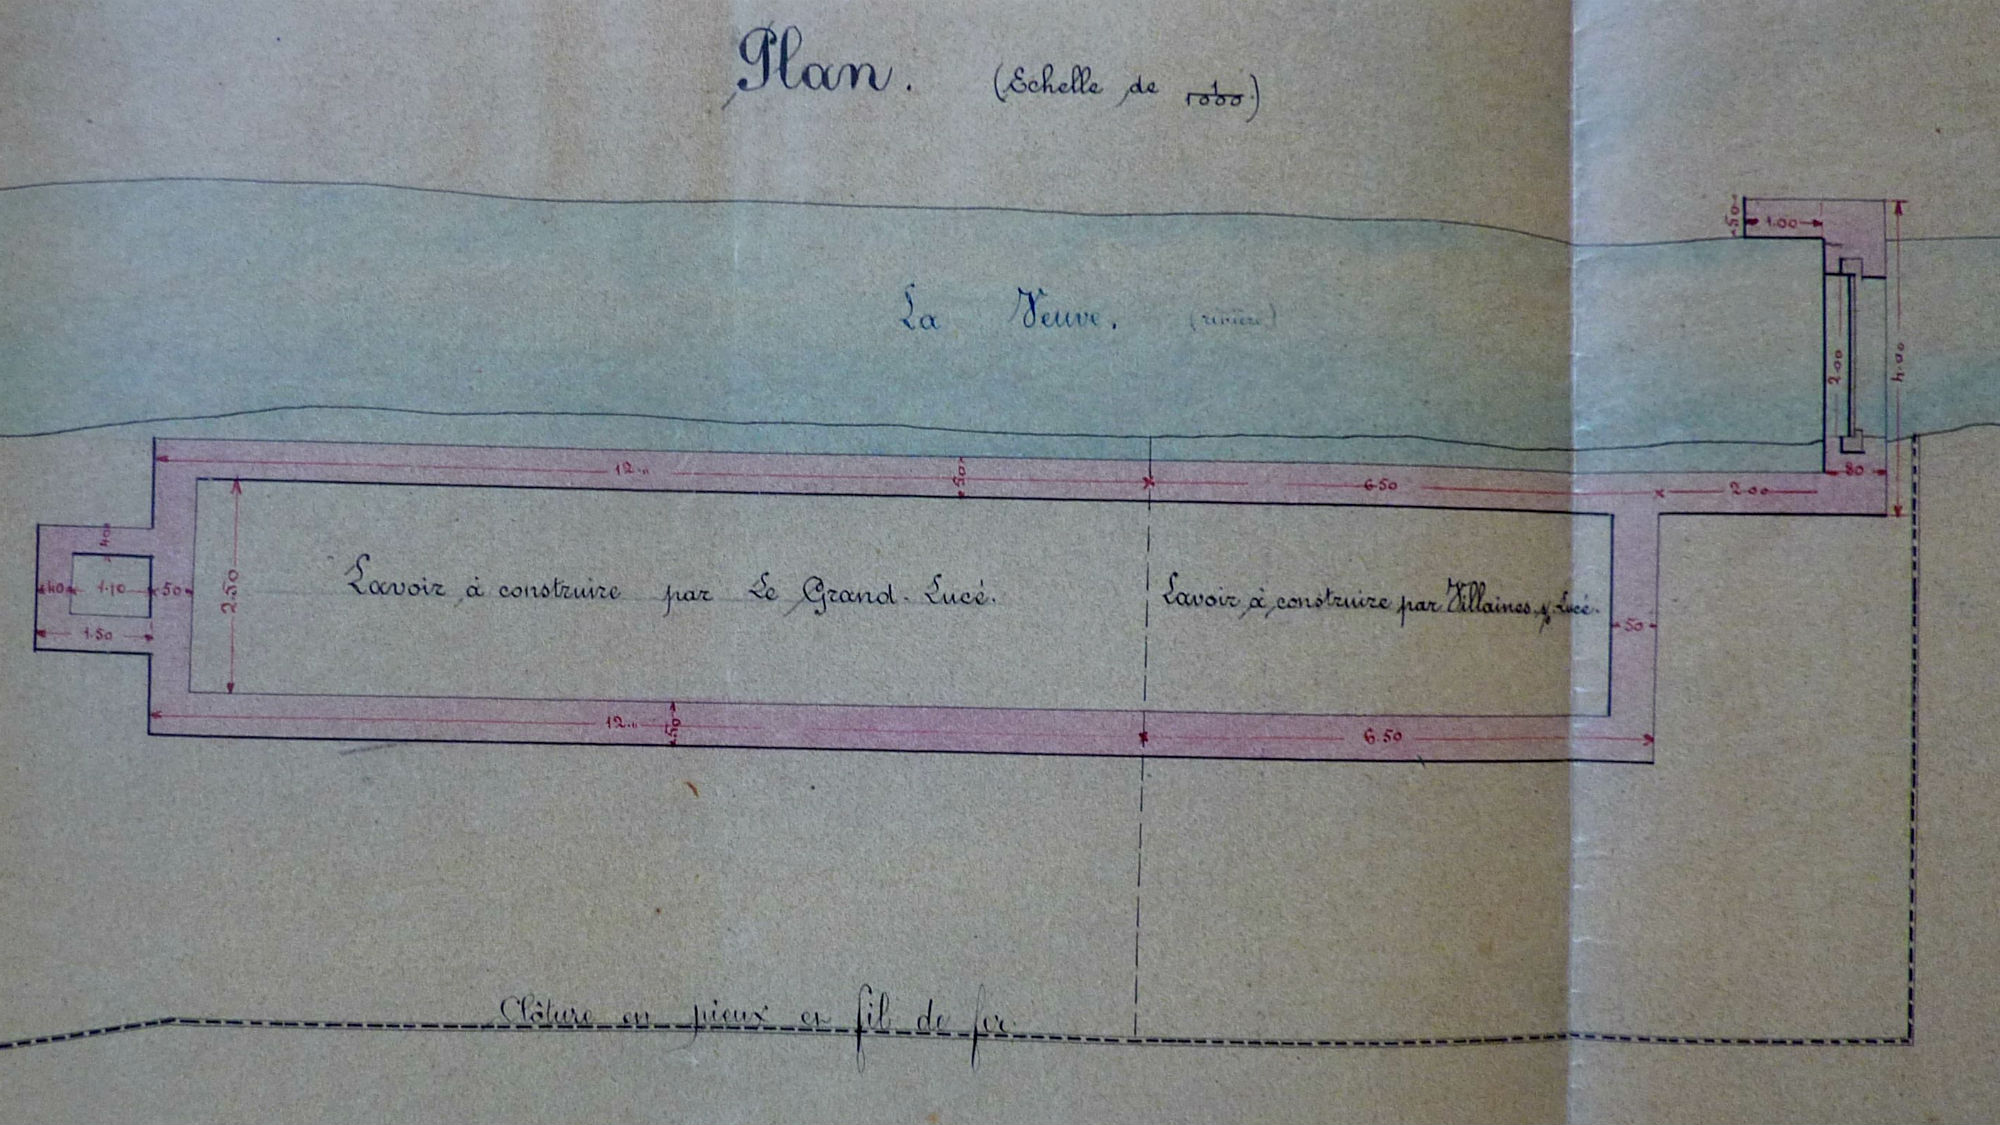 Plan. (Echelle de 1/1000)
50
1.00
La Veuve. (rivière)
2.00
4.00
12.,,
50
6.50
2.00
80
40
40
1.10
50
2.50
1.50
Lavoir à construire par Le Grand-Lucé.
Lavoir à construire par Villaines s/ Lucé.
50
12.,,
50
6.50
Clôture en pieux en fil de fer.